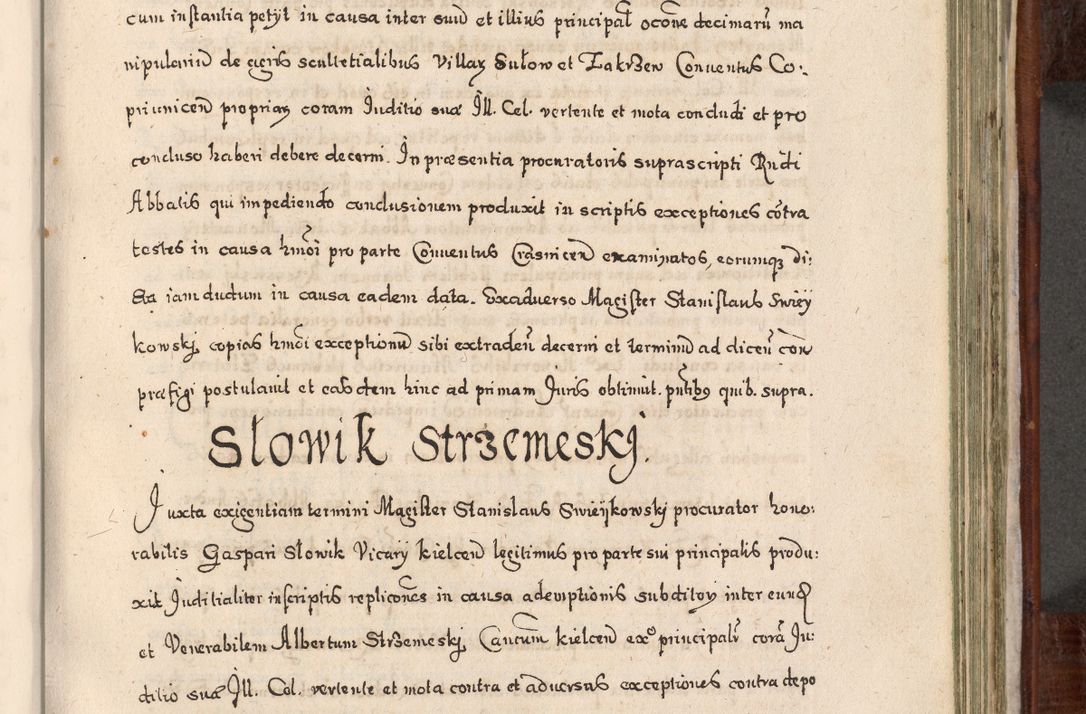 cum instantia petÿt in causa inter suũ et illius principal̃ ocoñe decimarũ ma
nipulariũ de agris scultetialibus Villaꝝ Sułow et Zakrzew Conuentus Co:
priunicen̄ propriaꝝ coram Juditio suæ Jll. Cel. vertente et mota concludi et pro
concluso haberi debere decerni. In præsentia procuratoris suprascripti Rñdi
Abbatis qui impediendo conclusionem produxit in scriptis exceptiones cõtra
testes in causa hmõi pro parte Conuentus Crasnicen̄ examinatos, eorumqȝ di:
cta iam dudum in causa eadem data. Exaduerso Magister Stanislaus Swieÿ
kowskj, copias hmõi exceptionũ sibi extraden̄ decerni et terminũ ad dicen̄ coñ
præfigi postulauit et eosdem hinc ad primam Juris obtinuit. pñtibȝ quib. supra.
Słowik Strzemeskj.
Juxta exigentiam termini Magister Stanislaus Swieÿkowskj procurator hono:
rabilis Gaspari Słowik Vicarÿ kielcen̄ legitimus pro parte sui principalis produ:
xit Juditialiter inscriptis replicoñes in causa ademptionis subditoꝝ inter eund̃
et Venerabilem Albertum Strzemeskj, Cancum̃ kielcen̄ exº principalẽ corã Ju:
ditio suæ Jll. Cel. vertente et mota contra et aduersus exceptiones contra depo